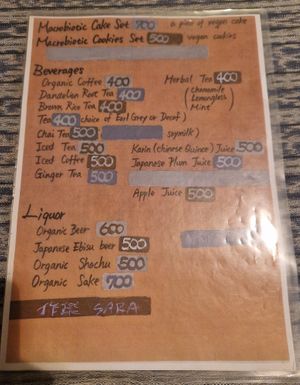 Macrobiotic Cake Set 700 a piece of vegan cake
Macrobiotic Cookies Set 500 vegan cookies
Beverages
Organic Coffee 400
Herbal Tea 400
(Chamomile
Lemongrass
Mint)
Dandelion Root Tea 400
Brown Rice Tea 400
Tea 400 (choice of Earl Grey or Decaf)
Chai Tea 500 soymilk)
Iced Tea 500
Karin (chinese Quince) Juice 500
Iced Coffee 500
Japanese Plum Juice 500
Ginger Tea 500
Apple Juice 500
Liquor
Organic Beer 600
Japanese Ebisu beer 500
Organic Shochu 500
Organic Sake 700
SARA